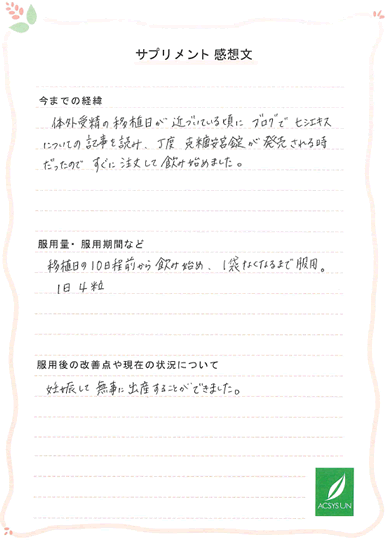 サプリメント 感想文
今までの経緯
体外受精の移植日が近づいている頃に ブログで ヒシエキス
についての記事を読み、丁度 克糖安宮錠が発売される時
だったので すぐに注文して飲み始めました。
服用量・服用期間など
移植日の10日程前から飲み始め、1袋なくなるまで服用。
1日4粒
服用後の改善点や現在の状況について
妊娠して無事に出産することができました。
ACSYSUN